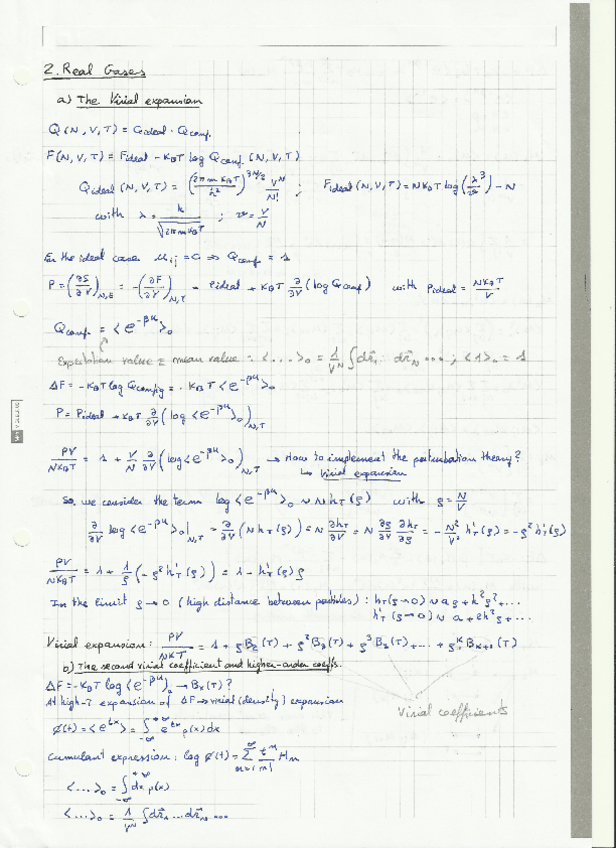 2. Real Gases
a) The Virial expansion
Q(N,V,T) = Qideal · Qconf.
F(N,V,T) = Fideal - KBT log Qconf (N,V,T)
Qideal (N,V,T) = (2πm KBT / h²)^(3N/2) V^N / N! ; Fideal (N,V,T) = NKBT log(λ³/v) - N
with λ = h / √(2πmKBT) ; v = V/N
In the ideal case uij = 0 ⇒ Qconf = 1
P = (∂S/∂V)N,E = -(∂F/∂V)N,T = Pideal + KBT ∂/∂V (log Qconf) with Pideal = NKBT/V
Qconf = <e^-βu>₀
Expectation value = mean value = <...>₀ = 1/V^N ∫dr₁... drN ... ; <1>₀ = 1
ΔF = -KBT log Qconfig = -KBT <e^-βu>₀
P = Pideal + KBT ∂/∂V (log <e^-βu>₀)N,T
PV/NKBT = 1 + V/N ∂/∂V (log <e^-βu>₀)N,T → How to implement the perturbation theory?
↳ Virial expansion
So, we consider the term log <e^-βu>₀ ~ N hT(ρ) with ρ = N/V
∂/∂V log <e^-βu>₀|N,T = ∂/∂V (N hT(ρ)) = N ∂hT/∂V = N ∂ρ/∂V ∂hT/∂ρ = -N²/V² h'T(ρ) = -ρ² h'T(ρ)
PV/NKBT = 1 + 1/ρ (-ρ² h'T(ρ)) = 1 - h'T(ρ)ρ
In the limit ρ → 0 (high distance between particles) : hT(ρ→0) ~ aρ + k²ρ² + ...
h'T(ρ→0) ~ a + 2k²ρ + ...
Virial expansion: PV/NKT = 1 + ρB₂(T) + ρ²B₃(T) + ρ³B₂(T) + ... + ρ^K BK+1(T)
b) The second virial coefficient and higher-order coeffs.
ΔF = -KBT log <e^-βu>₀ → B₂(T)?
At high-T expansion of ΔF → virial (density) expansion
Virial coefficients
ϕ(t) = <e^tx> = ∫-∞^+∞ e^tx ρ(x)dx
Cumulant expression: log ϕ(t) = Σ n=1 ^∞ t^n/n! Mn
<...>₀ = ∫-∞^+∞ dx ρ(x)
<...>₀ = 1/V^N ∫dr₁...drN ...